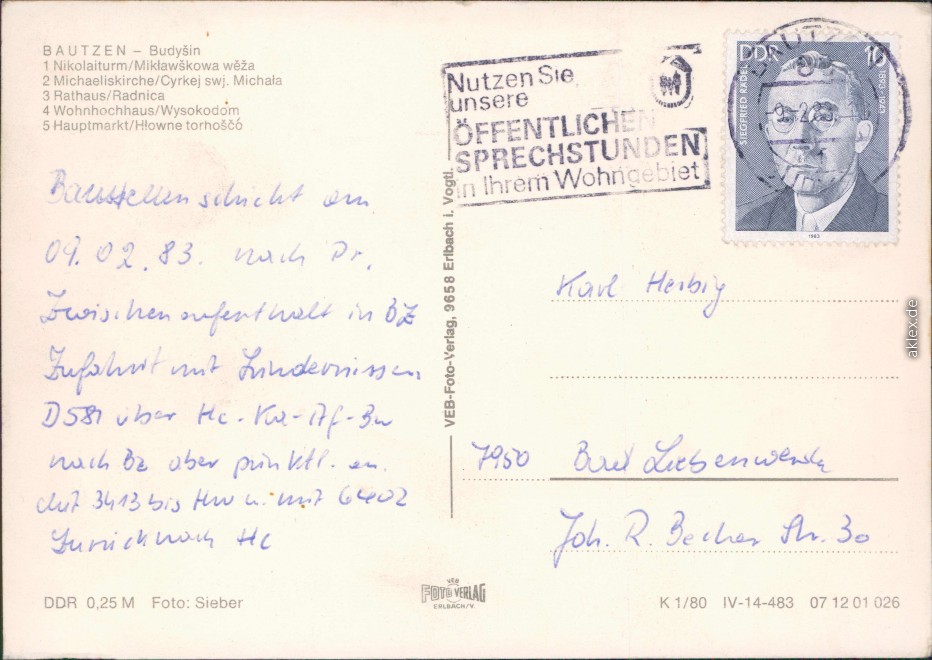 BAUTZEN – Budyšin
1 Nikolaiturm/Miklawškowa wěža
2 Michaeliskirche/Cyrkej swj. Michała
3 Rathaus/Radnica
4 Wohnhochhaus/Wysokodom
5 Hauptmarkt/Hłowne torhošćo
Nutzen Sie
unsere
ÖFFENTLICHEN
SPRECHSTUNDEN
in Ihrem Wohngebiet
BAUTZEN
-9.-2.83
DDR 10
SIEGFRIED RÄDEL
1893-1943
1983
Baustellenschicht am
09.02.83. nach Dr.
Zwischenaufenthalt in BZ
Zufahrt mit Hindernissen
D581 über Hc-Ka-Af-Bw
nach Bz aber pünktl. an.
mit 3413 bis Hw u. mit 6402
Zurück nach Hc
VEB-Foto-Verlag, 9658 Erlbach i. Vogtl.
Karl Herbig
7950 Bad Liebenwerda
Joh. R. Becher Str. 30
DDR 0,25 M Foto: Sieber
VEB
FOTO VERLAG
ERLBACH/V.
K 1/80 IV-14-483 07 12 01 026
aklex.de